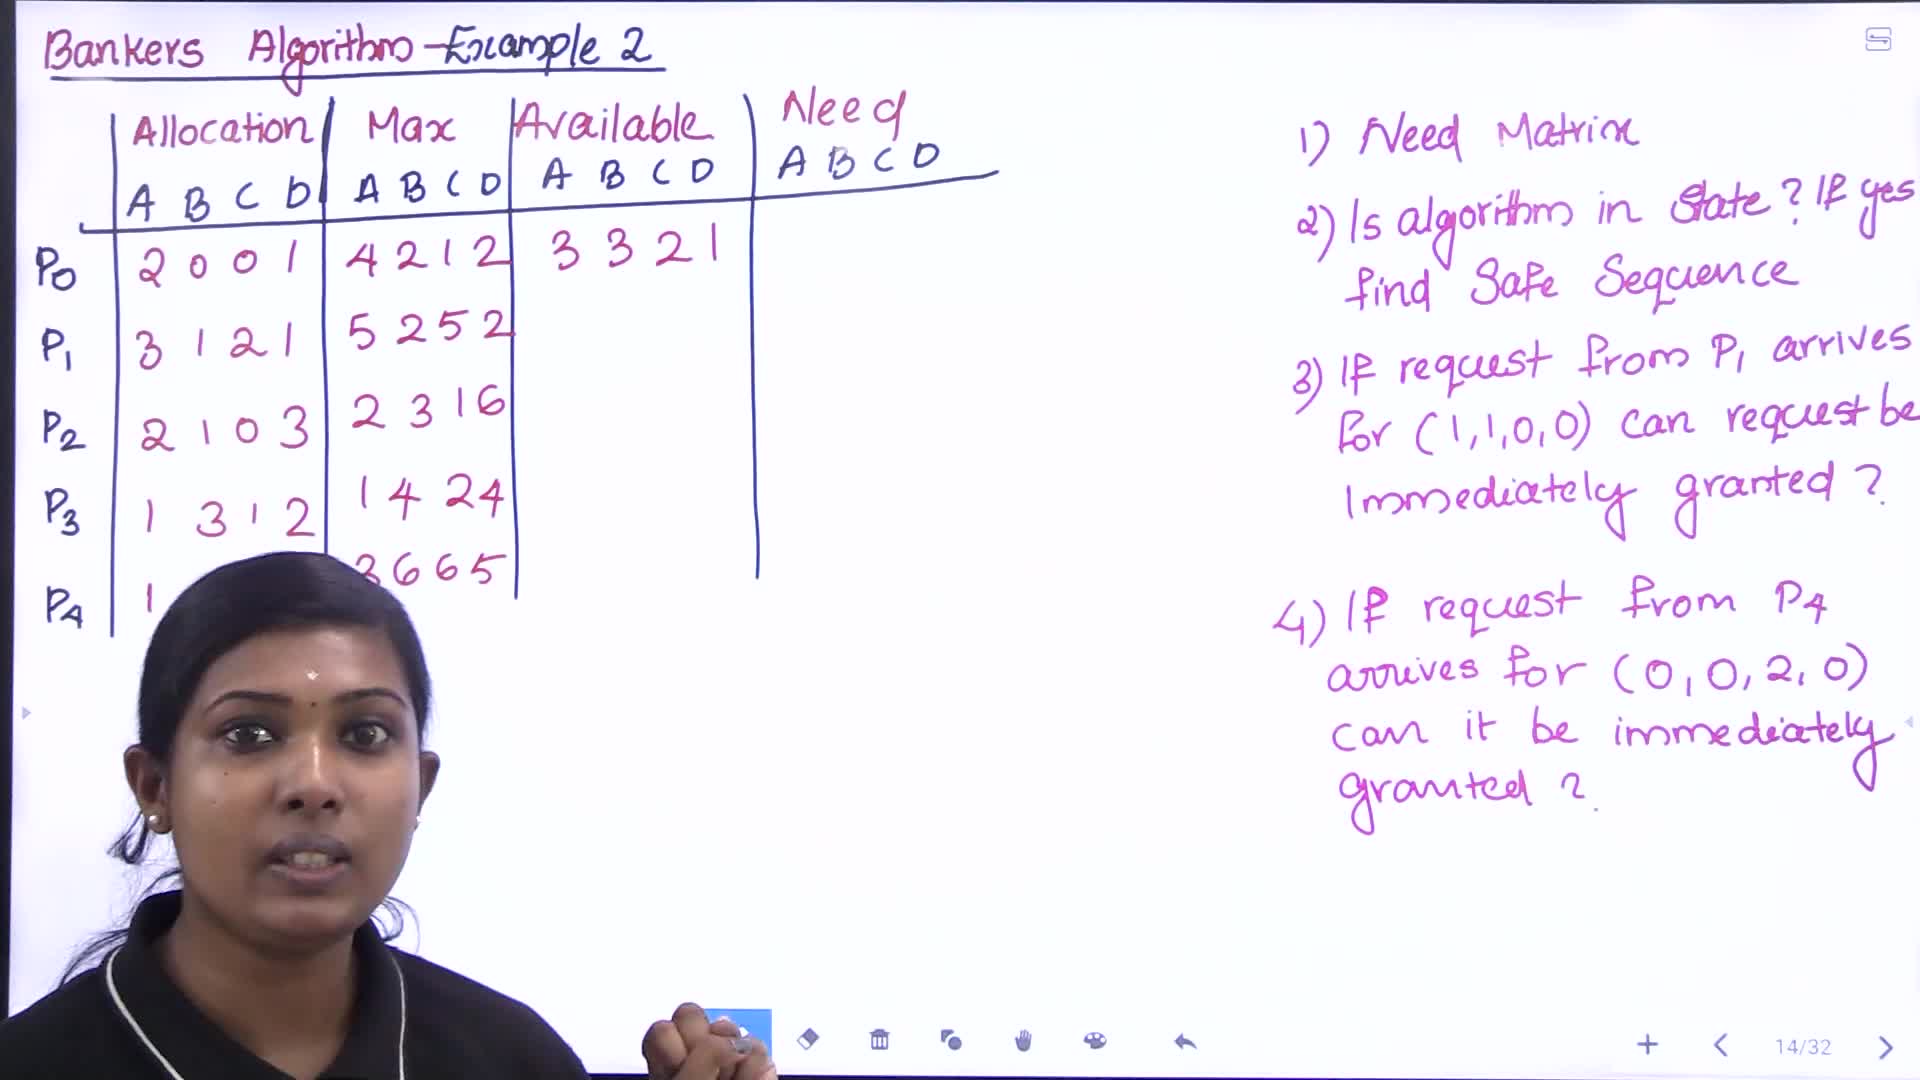 Bankers Algorithm - Example 2
Allocation Max Available Need
A B C D A B C D A B C D A B C D
P0 2 0 0 1 4 2 1 2 3 3 2 1
P1 3 1 2 1 5 2 5 2
P2 2 1 0 3 2 3 1 6
P3 1 3 1 2 1 4 2 4
P4 1 3 6 6 5
1) Need Matrix
2) Is algorithm in State? If yes
find Safe Sequence
3) If request from P1 arrives
for (1,1,0,0) can request be
Immediately granted?
4) If request from P4
arrives for (0,0,2,0)
can it be immediately
granted?
14/32